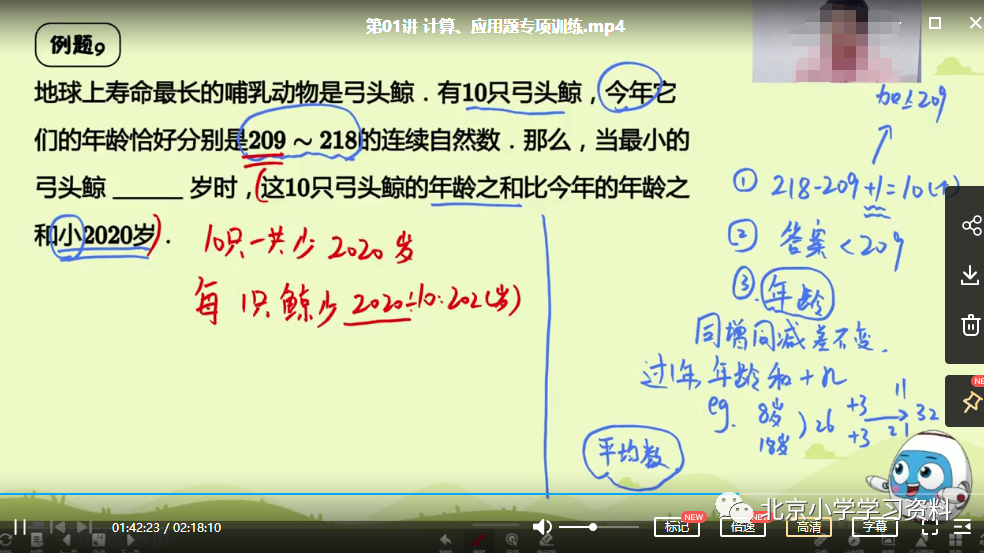 第01讲 计算、应用题专项训练.mp4
例题9
地球上寿命最长的哺乳动物是弓头鲸．有10只弓头鲸，今年它
们的年龄恰好分别是209～218的连续自然数．那么，当最小的
弓头鲸 ______ 岁时，这10只弓头鲸的年龄之和比今年的年龄之
和小2020岁．
10只一共少 2020 岁
每 1只 鲸少 2020÷10=202(岁)
209
① 218-209+1=10(个)
② 答案<209
③ 年龄
同增同减差不变.
过1年,年龄和+n
eg. 8岁
18岁
) 26
+3
+3
32
平均数
北京小学学习资料
01:42:23 / 02:18:10
标记
NEW
倍速
NEW
高清
字幕
NEW